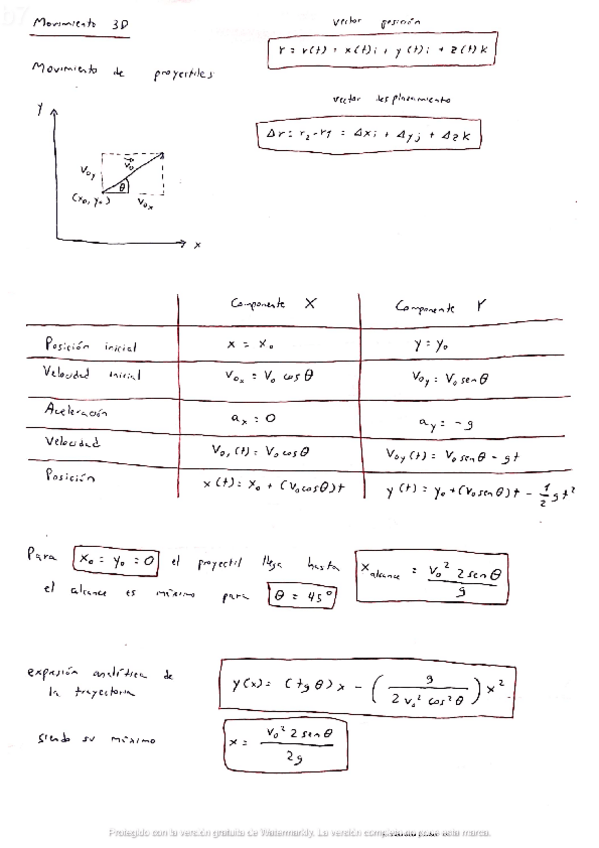 Movimiento 3D
vector posición
r = r(t) = x(t)i + y(t)j + z(t)k
Movimiento de proyectiles
vector desplazamiento
Δr = r₂ - r₁ = Δxi + Δyj + Δzk
y
V₀y
V₀
θ
(x₀, y₀)
V₀x
x
Componente X
Componente Y
Posición inicial
x = x₀
y = y₀
Velocidad inicial
V₀x = V₀ cosθ
V₀y = V₀ senθ
Aceleración
ax = 0
ay = -g
Velocidad
V₀x(t) = V₀ cosθ
V₀y(t) = V₀ senθ - gt
Posición
x(t) = x₀ + (V₀cosθ)t
y(t) = y₀ + (V₀senθ)t - 1/2 gt²
Para x₀ = y₀ = 0 el proyectil llega hasta
x alcance = V₀² 2senθ / g
el alcance es máximo para θ = 45°
expresión analítica de
la trayectoria
y(x) = (tgθ)x - (g / 2v₀² cos²θ) x²
siendo su máximo
x = V₀² 2senθ / 2g
Protegido con la versión gratuita de Watermarkly. La versión completa no pone esta marca.